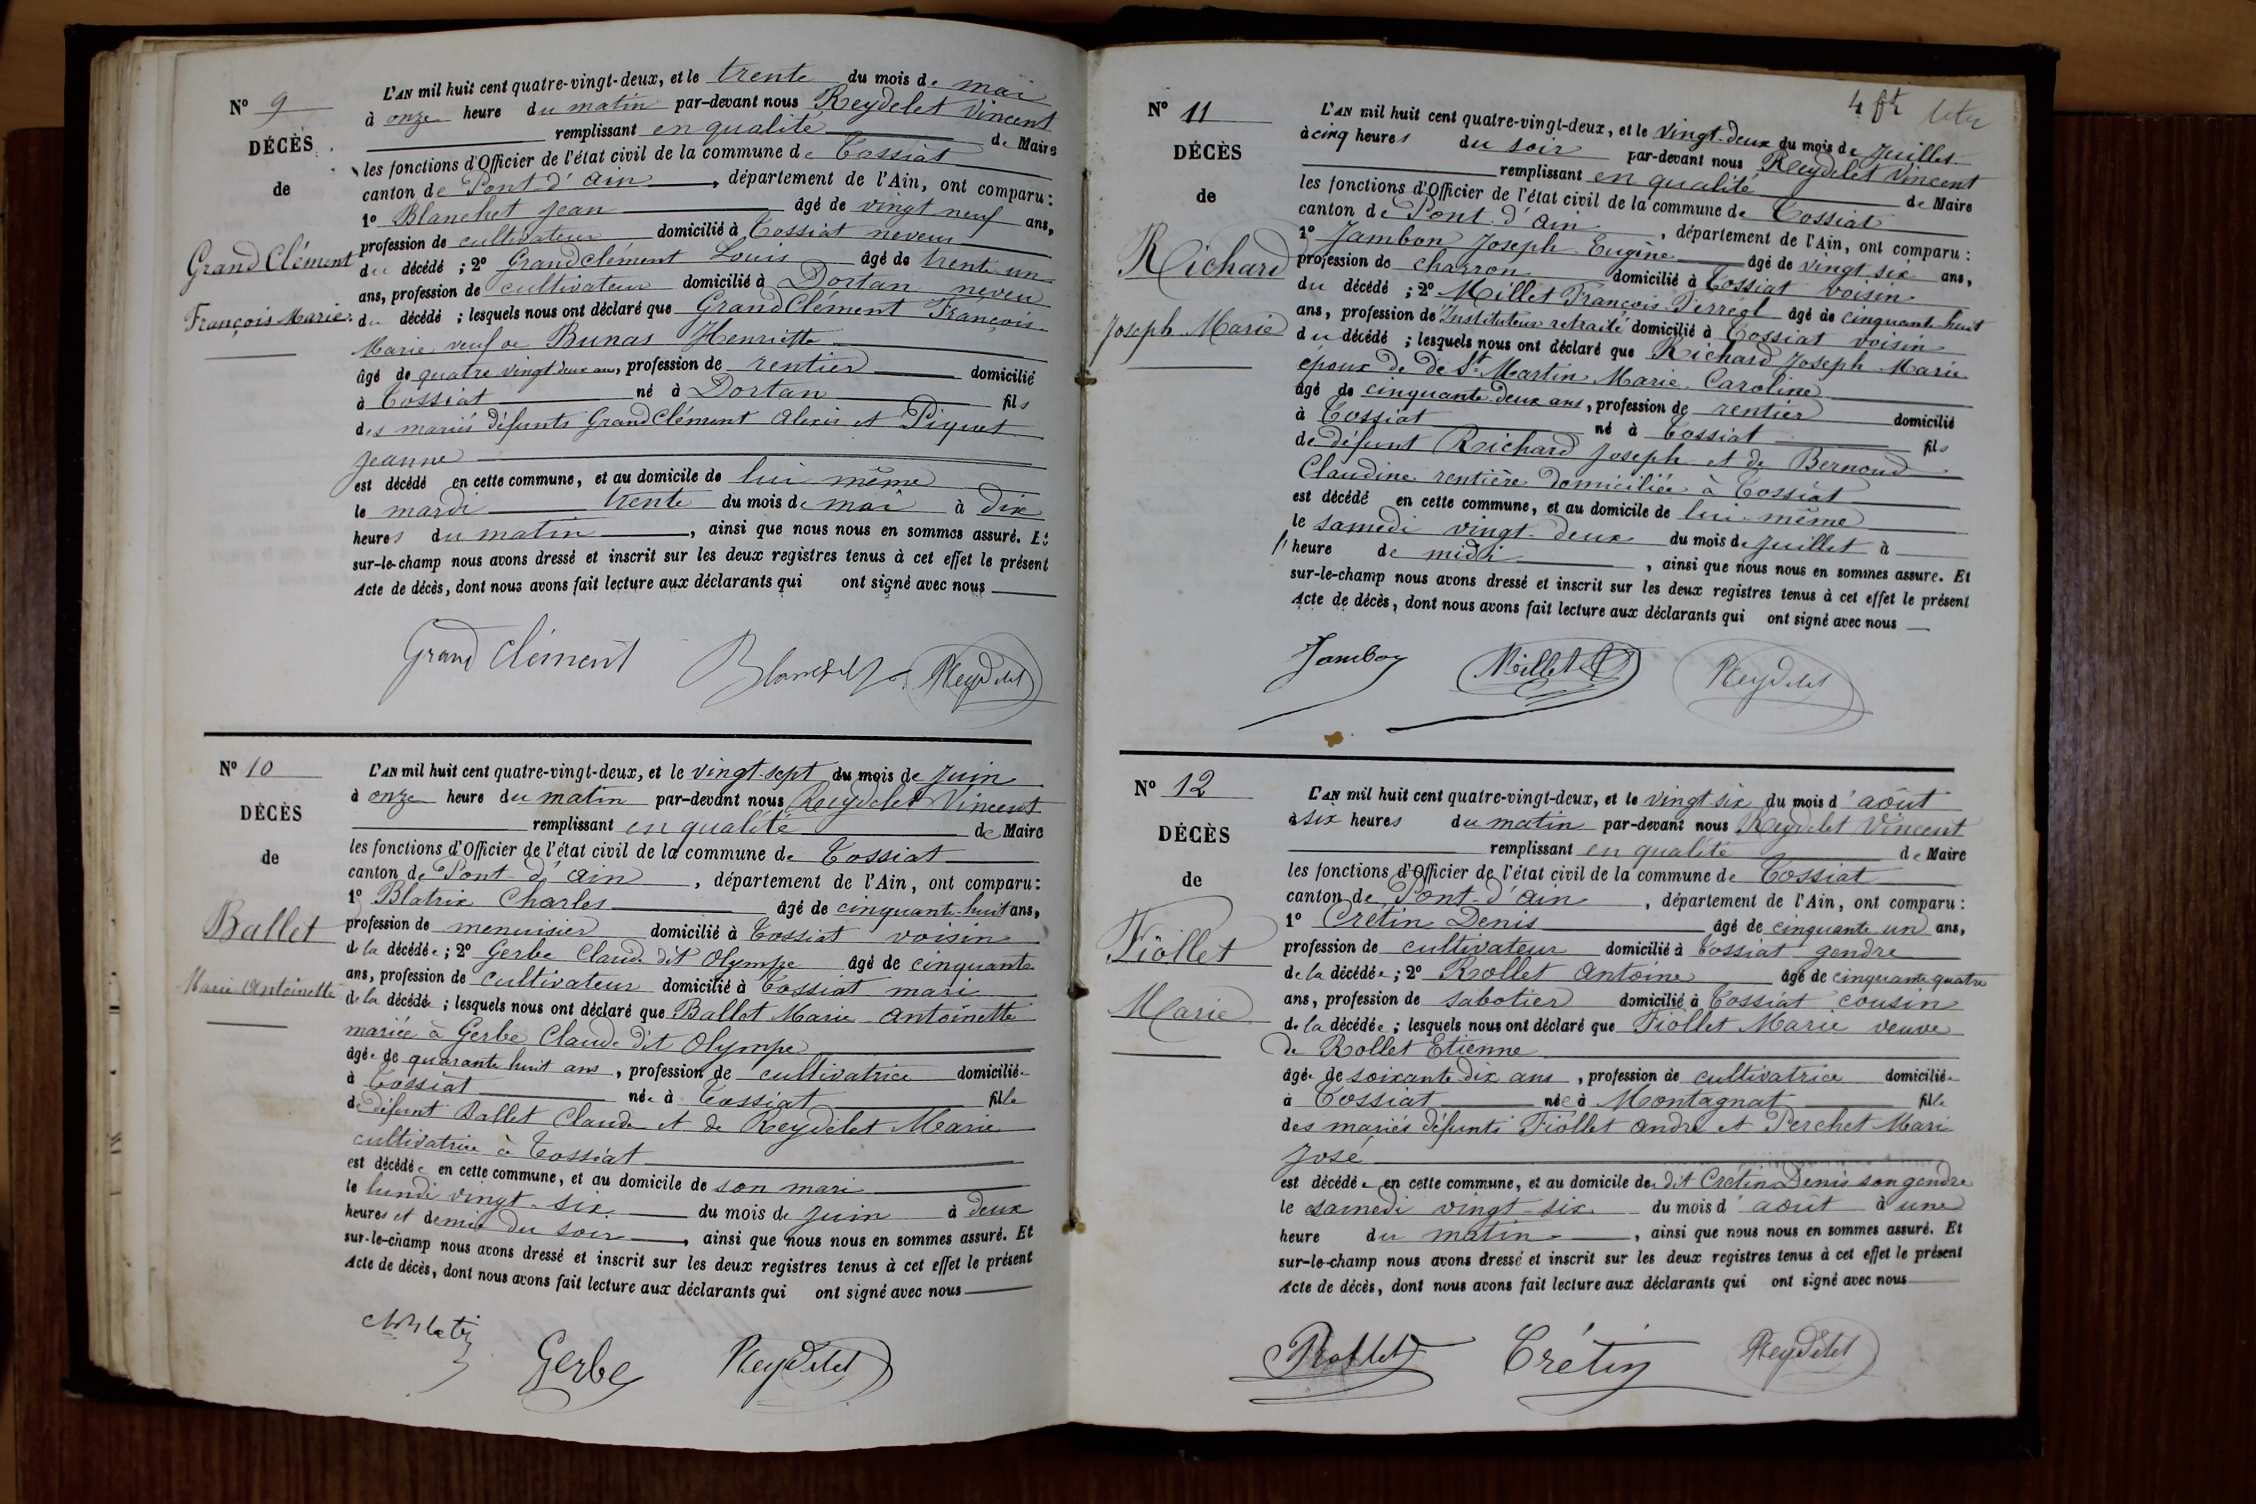 N° 9
DÉCÈS
de
Grand Clément
François Marie
L'AN mil huit cent quatre-vingt-deux, et le trente du mois de mai
à onze heure du matin par-devant nous Reydelet Vincent
remplissant en qualité de Maire
les fonctions d'Officier de l'état civil de la commune de Tossiat
canton de Pont d'Ain, département de l'Ain, ont comparu :
1° Blanchet Jean âgé de vingt neuf ans,
profession de cultivateur domicilié à Tossiat neveu
du décédé ; 2° Grandclément Louis âgé de trente un
ans, profession de cultivateur domicilié à Dortan neveu
du décédé ; lesquels nous ont déclaré que GrandClément François
Marie veuf de Bunas Henriette
âgé de quatre vingt deux ans, profession de rentier domicilié
à Tossiat né à Dortan fils
des mariés défunts GrandClément Alexis et Piquet
Jeanne
est décédé en cette commune, et au domicile de lui même
le mardi trente du mois de mai à dix
heures du matin, ainsi que nous nous en sommes assuré. Et
sur-le-champ nous avons dressé et inscrit sur les deux registres tenus à cet effet le présent
Acte de décès, dont nous avons fait lecture aux déclarants qui ont signé avec nous
Grand Clément Blanchet Reydelet
N° 10
DÉCÈS
de
Ballet
Marie Antoinette
L'AN mil huit cent quatre-vingt-deux, et le vingt-sept du mois de Juin
à onze heure du matin par-devant nous Reydelet Vincent
remplissant en qualité de Maire
les fonctions d'Officier de l'état civil de la commune de Tossiat
canton de Pont d'Ain, département de l'Ain, ont comparu :
1° Blatrix Charles âgé de cinquante-huit ans,
profession de menuisier domicilié à Tossiat voisin
de la décédée ; 2° Gerbe Claude dit Olympe âgé de cinquante
ans, profession de cultivateur domicilié à Tossiat mari
de la décédée ; lesquels nous ont déclaré que Ballet Marie Antoinette
mariée à Gerbe Claude dit Olympe
âgée de quarante huit ans, profession de cultivatrice domiciliée
à Tossiat née à Tossiat fille
de défunt Ballet Claude et de Reydelet Marie
cultivatrice à Tossiat
est décédée en cette commune, et au domicile de son mari
le lundi vingt-six du mois de juin à deux
heures et demie du soir, ainsi que nous nous en sommes assuré. Et
sur-le-champ nous avons dressé et inscrit sur les deux registres tenus à cet effet le présent
Acte de décès, dont nous avons fait lecture aux déclarants qui ont signé avec nous
Gerbe Reydelet
4 ft
N° 11
DÉCÈS
de
Richard
Joseph Marie
L'AN mil huit cent quatre-vingt-deux, et le vingt-deux du mois de Juillet
à cinq heures du soir par-devant nous Reydelet Vincent
remplissant en qualité de Maire
les fonctions d'Officier de l'état civil de la commune de Tossiat
canton de Pont d'Ain, département de l'Ain, ont comparu :
1° Jambon Joseph Eugène âgé de vingt six ans,
profession de charron domicilié à Tossiat voisin
du décédé ; 2° Millet François âgé de cinquante huit
ans, profession de Instituteur retraité domicilié à Tossiat voisin
du décédé ; lesquels nous ont déclaré que Richard Joseph Marie
époux de de St Martin Marie Caroline
âgé de cinquante deux ans, profession de rentier domicilié
à Tossiat né à Tossiat fils
de défunt Richard Joseph et de Bernoud
Claudine rentière domiciliée à Tossiat
est décédé en cette commune, et au domicile de lui-même
le samedi vingt-deux du mois de juillet à
l'heure de midi, ainsi que nous nous en sommes assuré. Et
sur-le-champ nous avons dressé et inscrit sur les deux registres tenus à cet effet le présent
Acte de décès, dont nous avons fait lecture aux déclarants qui ont signé avec nous
Jambon Millet Reydelet
N° 12
DÉCÈS
de
Fiollet
Marie
L'AN mil huit cent quatre-vingt-deux, et le vingt six du mois d'août
à six heures du matin par-devant nous Reydelet Vincent
remplissant en qualité de Maire
les fonctions d'Officier de l'état civil de la commune de Tossiat
canton de Pont-d'Ain, département de l'Ain, ont comparu :
1° Crétin Denis âgé de cinquante un ans,
profession de cultivateur domicilié à Tossiat gendre
de la décédée ; 2° Rollet Antoine âgé de cinquante quatre
ans, profession de sabotier domicilié à Tossiat cousin
de la décédée ; lesquels nous ont déclaré que Fiollet Marie veuve
de Rollet Etienne
âgée de soixante dix ans, profession de cultivatrice domiciliée
à Tossiat née à Montagnat fille
des mariés défunts Fiollet André et Perchet Marie
José
est décédée en cette commune, et au domicile de dit Crétin Denis son gendre
le samedi vingt-six du mois d'août à une
heure du matin, ainsi que nous nous en sommes assuré. Et
sur-le-champ nous avons dressé et inscrit sur les deux registres tenus à cet effet le présent
Acte de décès, dont nous avons fait lecture aux déclarants qui ont signé avec nous
Rollet Crétin Reydelet